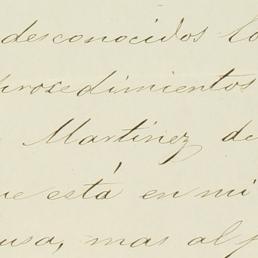 desconocidos lo
prosedimientos
Martinez de
ue está en mi
usa, mas al p